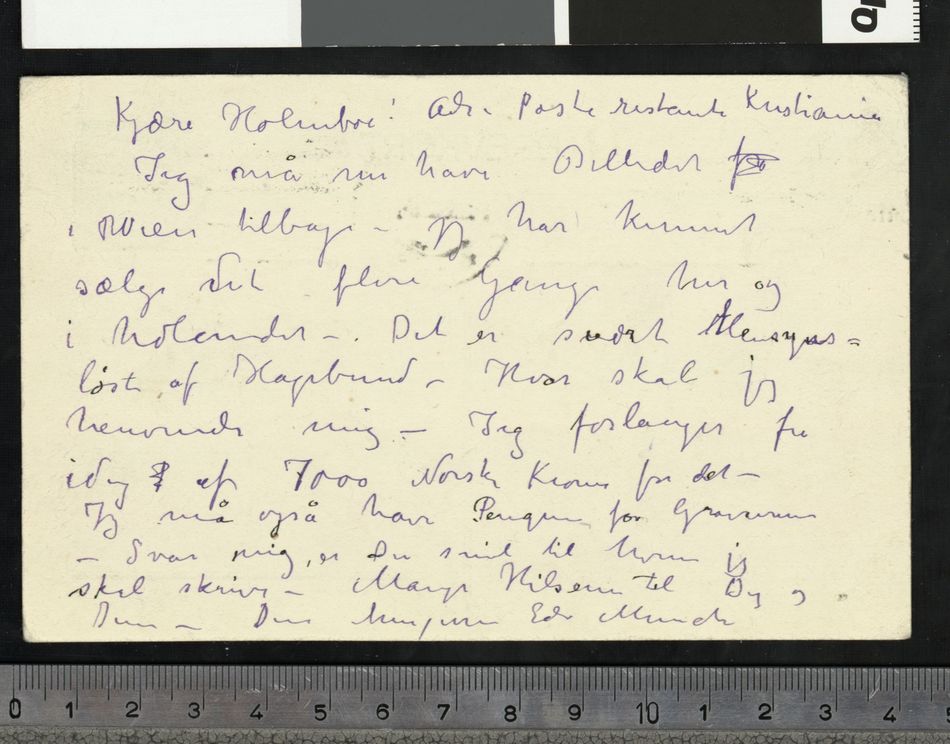 Kjære Holmboe! Adr. Poste restante Kristiania
Jeg må nu have Billedet
i Wien tilbage – Jeg har kunnet
sælge det flere Gange her og
i Udlandet –. Det er svært Hensyns=
løst af Hagebund – Hvor skal jeg
henvende mig – Jeg forlanger fra
idag af 7000 Norske Kroner for det –
Jeg må også have Pengene for Gravurerne
– Svar mig, er Du snil til hvem jeg
skal skrive – Mange Hilsener til Dig og
Din – Din hengivne Edv Munch
0 1 2 3 4 5 6 7 8 9 10 1 2 3 4